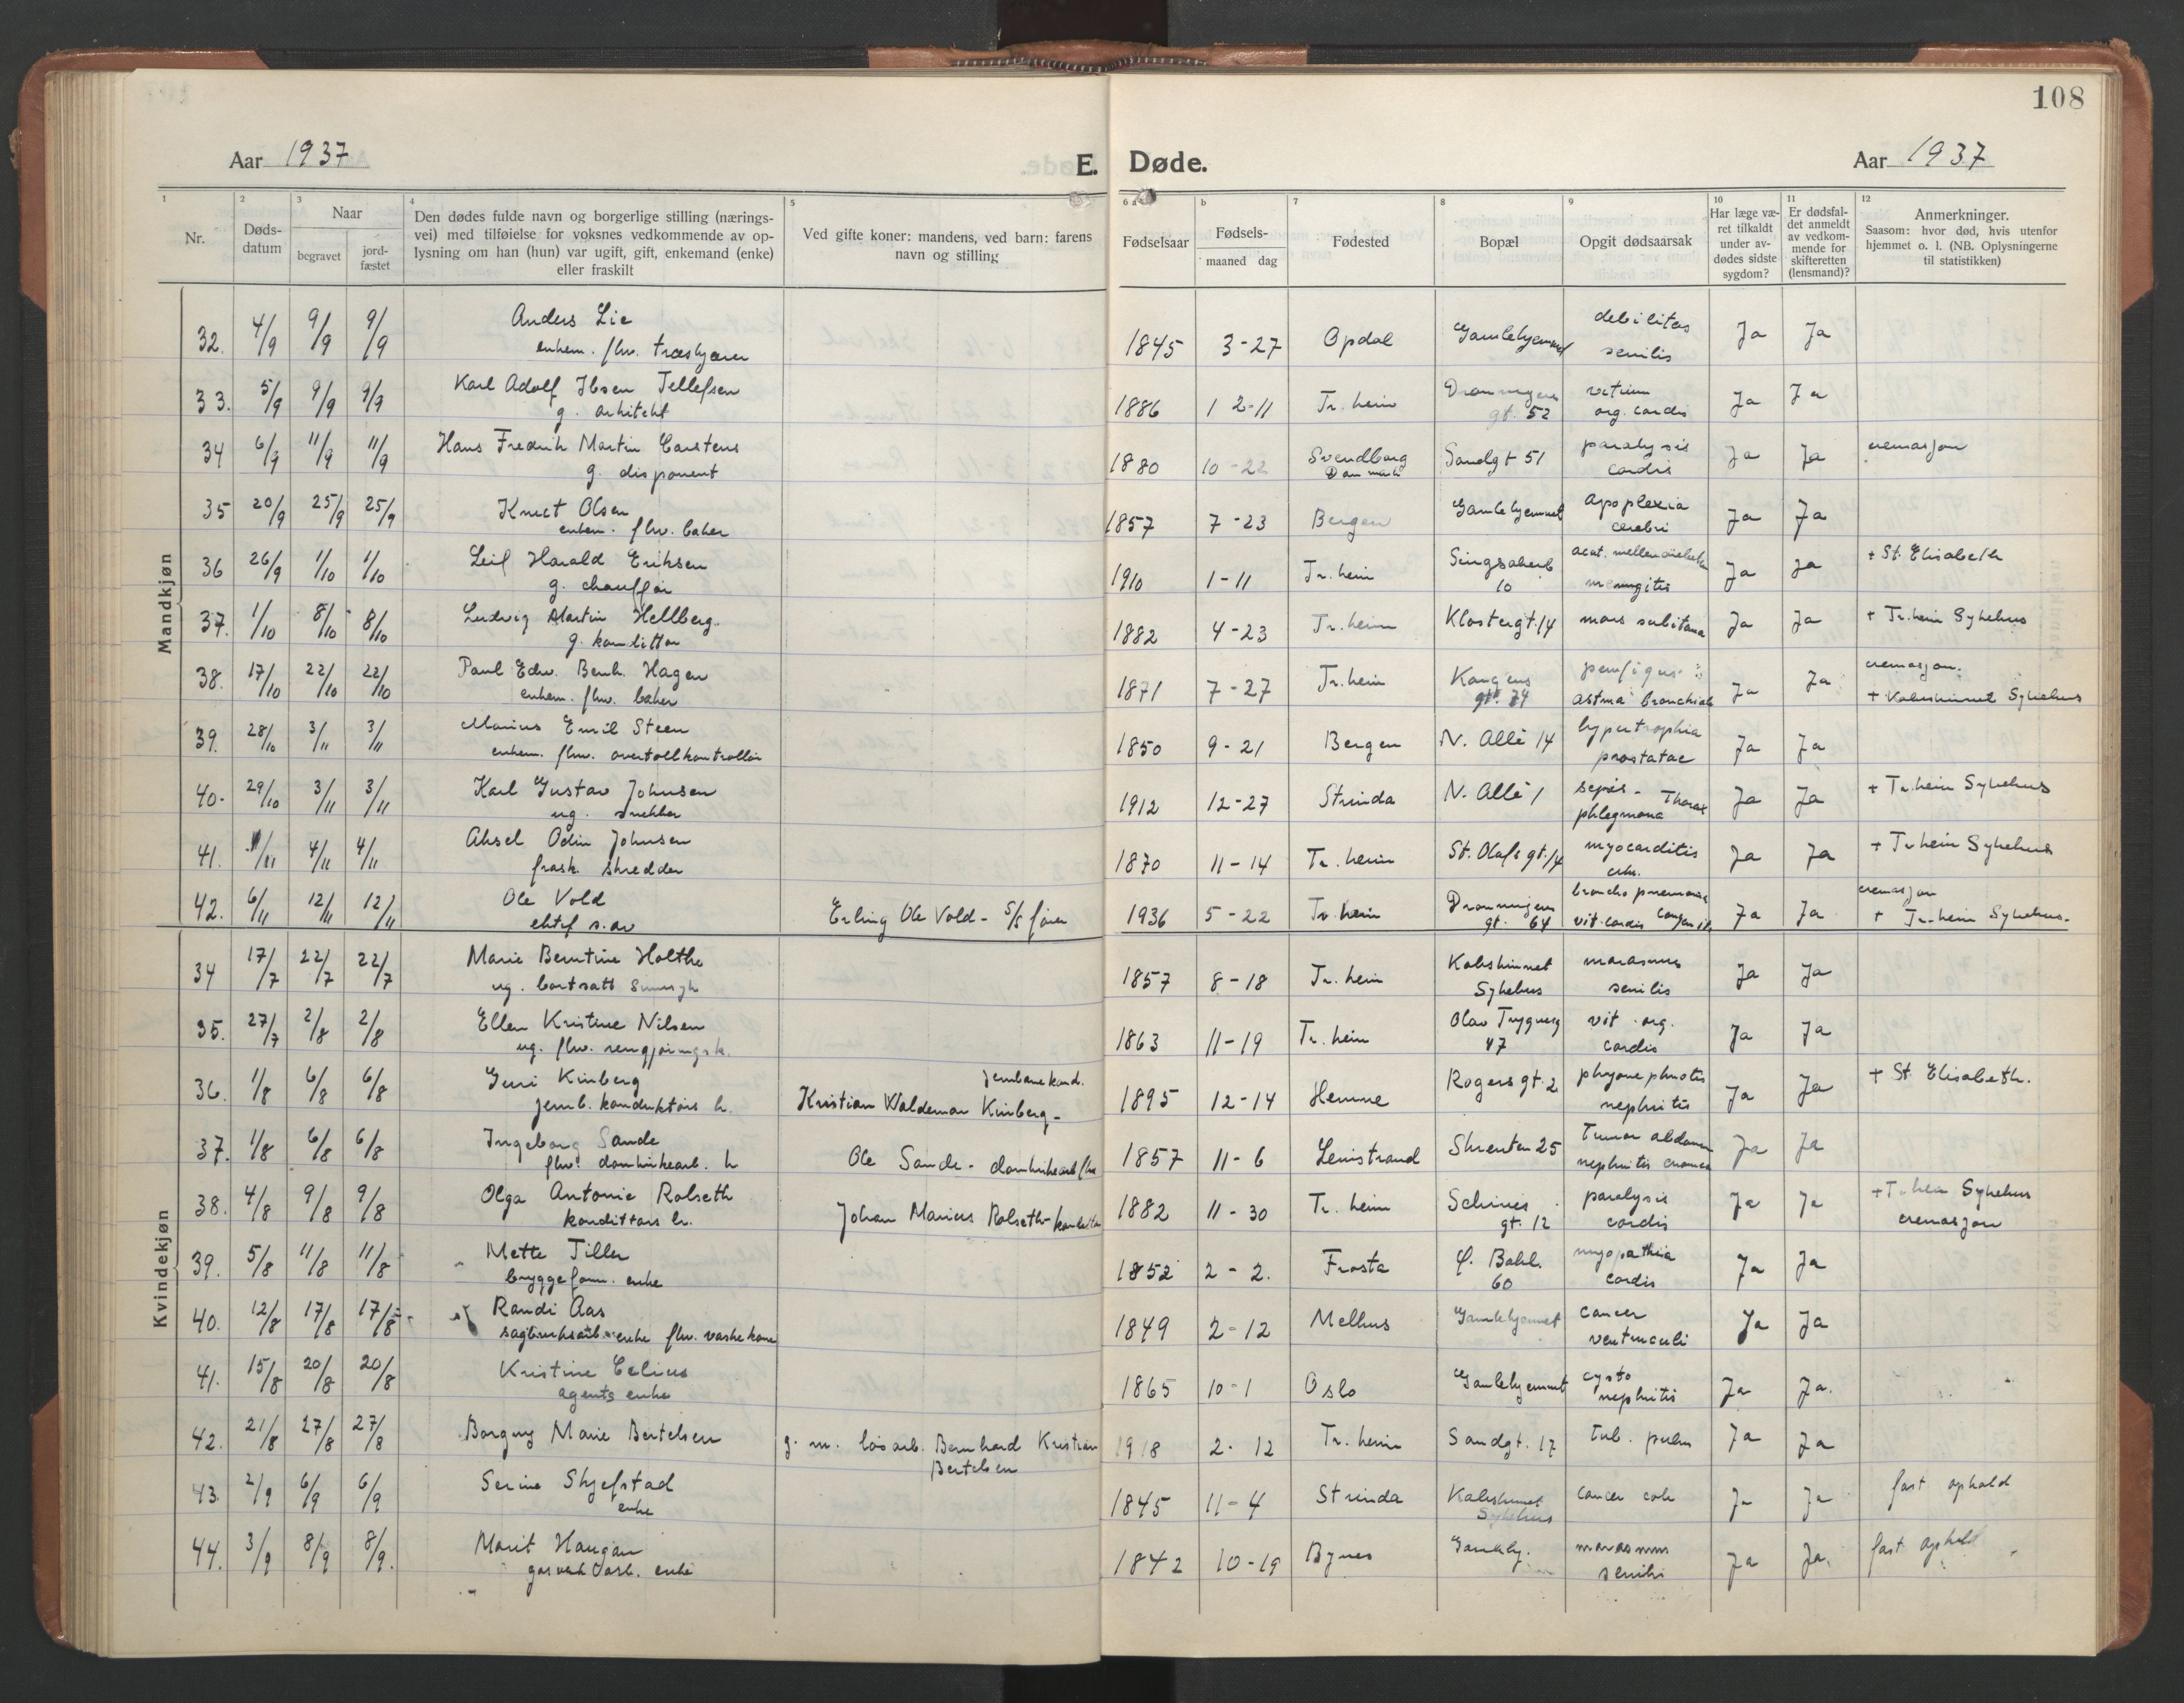 108
Aar 1937
E. Døde.
Aar 1937
1 2 3 4 5 6 a b 7 8 9 10 11 12
Nr.
Døds-
datum
Naar
begravet
jord-
fæstet
Den dødes fulde navn og borgerlige stilling (nærings-
vei) med tilføielse for voksnes vedkommende av op-
lysning om han (hun) var ugift, gift, enkemand (enke)
eller fraskilt
Ved gifte koner: mandens, ved barn: farens
navn og stilling
Fødselsaar
Fødsels-
maaned dag
Fødested
Bopæl
Opgit dødsaarsak
Har læge væ-
ret tilkaldt
under av-
dødes sidste
sygdom?
Er dødsfal-
det anmeldt
av vedkom-
mende for
skifteretten
(lensmand)?
Anmerkninger.
Saasom: hvor død, hvis utenfor
hjemmet o. l. (NB. Oplysningerne
til statistikken)
Mandkjøn
32. 4/9 9/9 9/9 Anders Lie 1845 3-27 Opdal Gamlehjemmet debilitas Ja Ja
enkem. fhv. senilis
33. 5/9 9/9 9/9 Karl Adolf Ibsen Tellefsen 1886 12-11 Tr.heim Dronningens vitium Ja Ja
g. arkitekt gt. 52 org. cordis
34 6/9 11/9 11/9 Hans Fredrik Martin Carstens 1880 10-22 Svendborg Sandgt 51 paralysis Ja Ja cremasjon
g. disponent Danmark cordis
35 20/9 25/9 25/9 Knut Olsen 1857 7-23 Bergen Gamlehjemmet apoplexia Ja Ja
enkem. fhv. baker cerebri
36 26/9 1/10 1/10 Leif Harald Eriksen 1910 1-11 Tr.heim acut. Ja Ja + St. Elisabeth
g. chauffør 10 meningitis
37. 1/10 8/10 8/10 Ludvig Martin Hellberg. 1882 4-23 Tr.heim Klostergt. 14 mors subitana Ja Ja + Tr.heim Sykehus
g. konditter
38. 17/10 22/10 22/10 Paul Edv. Bernh. Hagen 1871 7-27 Tr.heim Kongens pemfigus Ja Ja cremasjon.
enkem. fhv. baker gt. 74 astma bronchiale + Kalvskinnet Sykehus
39. 28/10 3/11 3/11 Marius Emil Steen 1850 9-21 Bergen N. Allè 14 hypertrophia Ja Ja
enkem. fhv. overtollkontrollør prostatae
40. 29/10 3/11 3/11 Karl Gustav Johnsen 1912 12-27 Strinda N. Allè 1 sepsis - Ja Ja + Tr.heim Sykehus
ug. snekker phlegmona Thorax
41. 4/11 4/11 Aksel Odin Johnsen 1870 11-14 Tr.heim St. Olafs gt. 14 myocarditis Ja Ja + Tr.heim Sykehus
frask. skredder chr.
42. 6/11 12/11 12/11 Ole Vold Erling Ole Vold - S/S fører 1936 5-22 Tr.heim Dronningens broncho pneumonia Ja Ja cremasjon
ektef. s. av gt. 64 vit. cordis congenit + Tr.heim Sykehus.
Kvindekjøn
34 17/7 22/7 22/7 Marie Berntine Holthe 1857 8-18 Tr.heim Kalvskinnet marasmus Ja Ja
ug. bortsatt Sykehus senilis
35. 27/7 2/8 2/8 Ellen Kristine Nilsen 1863 11-19 Tr.heim Olav Trygvesg vit. org. Ja Ja
ug. fhv. rengjøringsk. 47 cordis
36. 1/8 6/8 6/8 Guri Kinberg Jernbanekond. 1895 12-14 Hemne Rogers gt. 2 Ja Ja + St. Elisabeth.
jernb. konduktørs h. Kristian Waldemar Kinberg - nephritis
37. 1/8 6/8 6/8 Ingeborg Sande Ole Sande - 1857 11-6 Leinstrand Skrenten 25 Tumor abdomen Ja Ja
nephritis
38. 4/8 9/8 9/8 Olga Antonie Rolseth Johan Marius Rolseth - 1882 11-30 Tr.heim Schives paralysis Ja Ja + Tr.heim Sykehus
kondittors h. gt. 12 cordis cremasjon
39. 5/8 11/8 11/8 Mette Tiller 1852 2-2. Frosta Ø. Bakl. myopathia Ja Ja
bryggeform. enke 60 cordis
40. 12/8 17/8 17/8 Randi Aas 1849 2-12 Melhus Gamlehjemmet cancer Ja Ja
sagbruksarb. enke fhv. vaskekone ventriculi
41. 15/8 20/8 20/8 Kristine Celius 1865 10-1 Oslo Gamlehjemmet cysto Ja Ja.
agents enke nephritis
42. 21/8 27/8 27/8 Borgny Marie Bertelsen g. m. løsarb. Bernhard Kristian 1918 2-12 Tr.heim Sandgt. 17 tub. pulm Ja Ja
Bertelsen
43. 2/9 6/9 6/9 Serine Skjefstad 1845 11-4 Strinda Kalvskinnet cancer coli Ja Ja fast ophold
enke Sykehus
44. 3/9 8/9 8/9. Marit Haugan 1842 10-19 Bynes Gamlehj. marasmus Ja Ja. fast ophold
gasverksarb. enke senilis